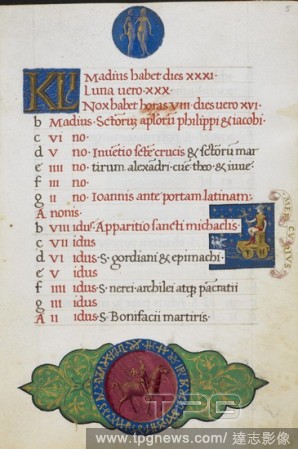 5
KL Madius habet dies XXXI·
Luna uero·XXX·
Nox habet horas VIII dies uero XVI·
b Madius·Sctorum aplorum philippi & iacobi·
c VI no·
d V no·Inuetio scte crucis & sctorum mar
e IIII no·tirum alexadri·eue·theo & iuue
f III no·
g II no·Ioannis ante portam latinam·
A nonis·
b VIII idus·Apparitio sancti michaelis
c VII idus
d VI idus·S·gordiani & epimachi·
e V idus
f IIII idus·S·nerei·archilei atq pacratii
g III idus
A II idus·S·Bonifacii martiris·
TPG
www.tpgnews.com / 達志影像